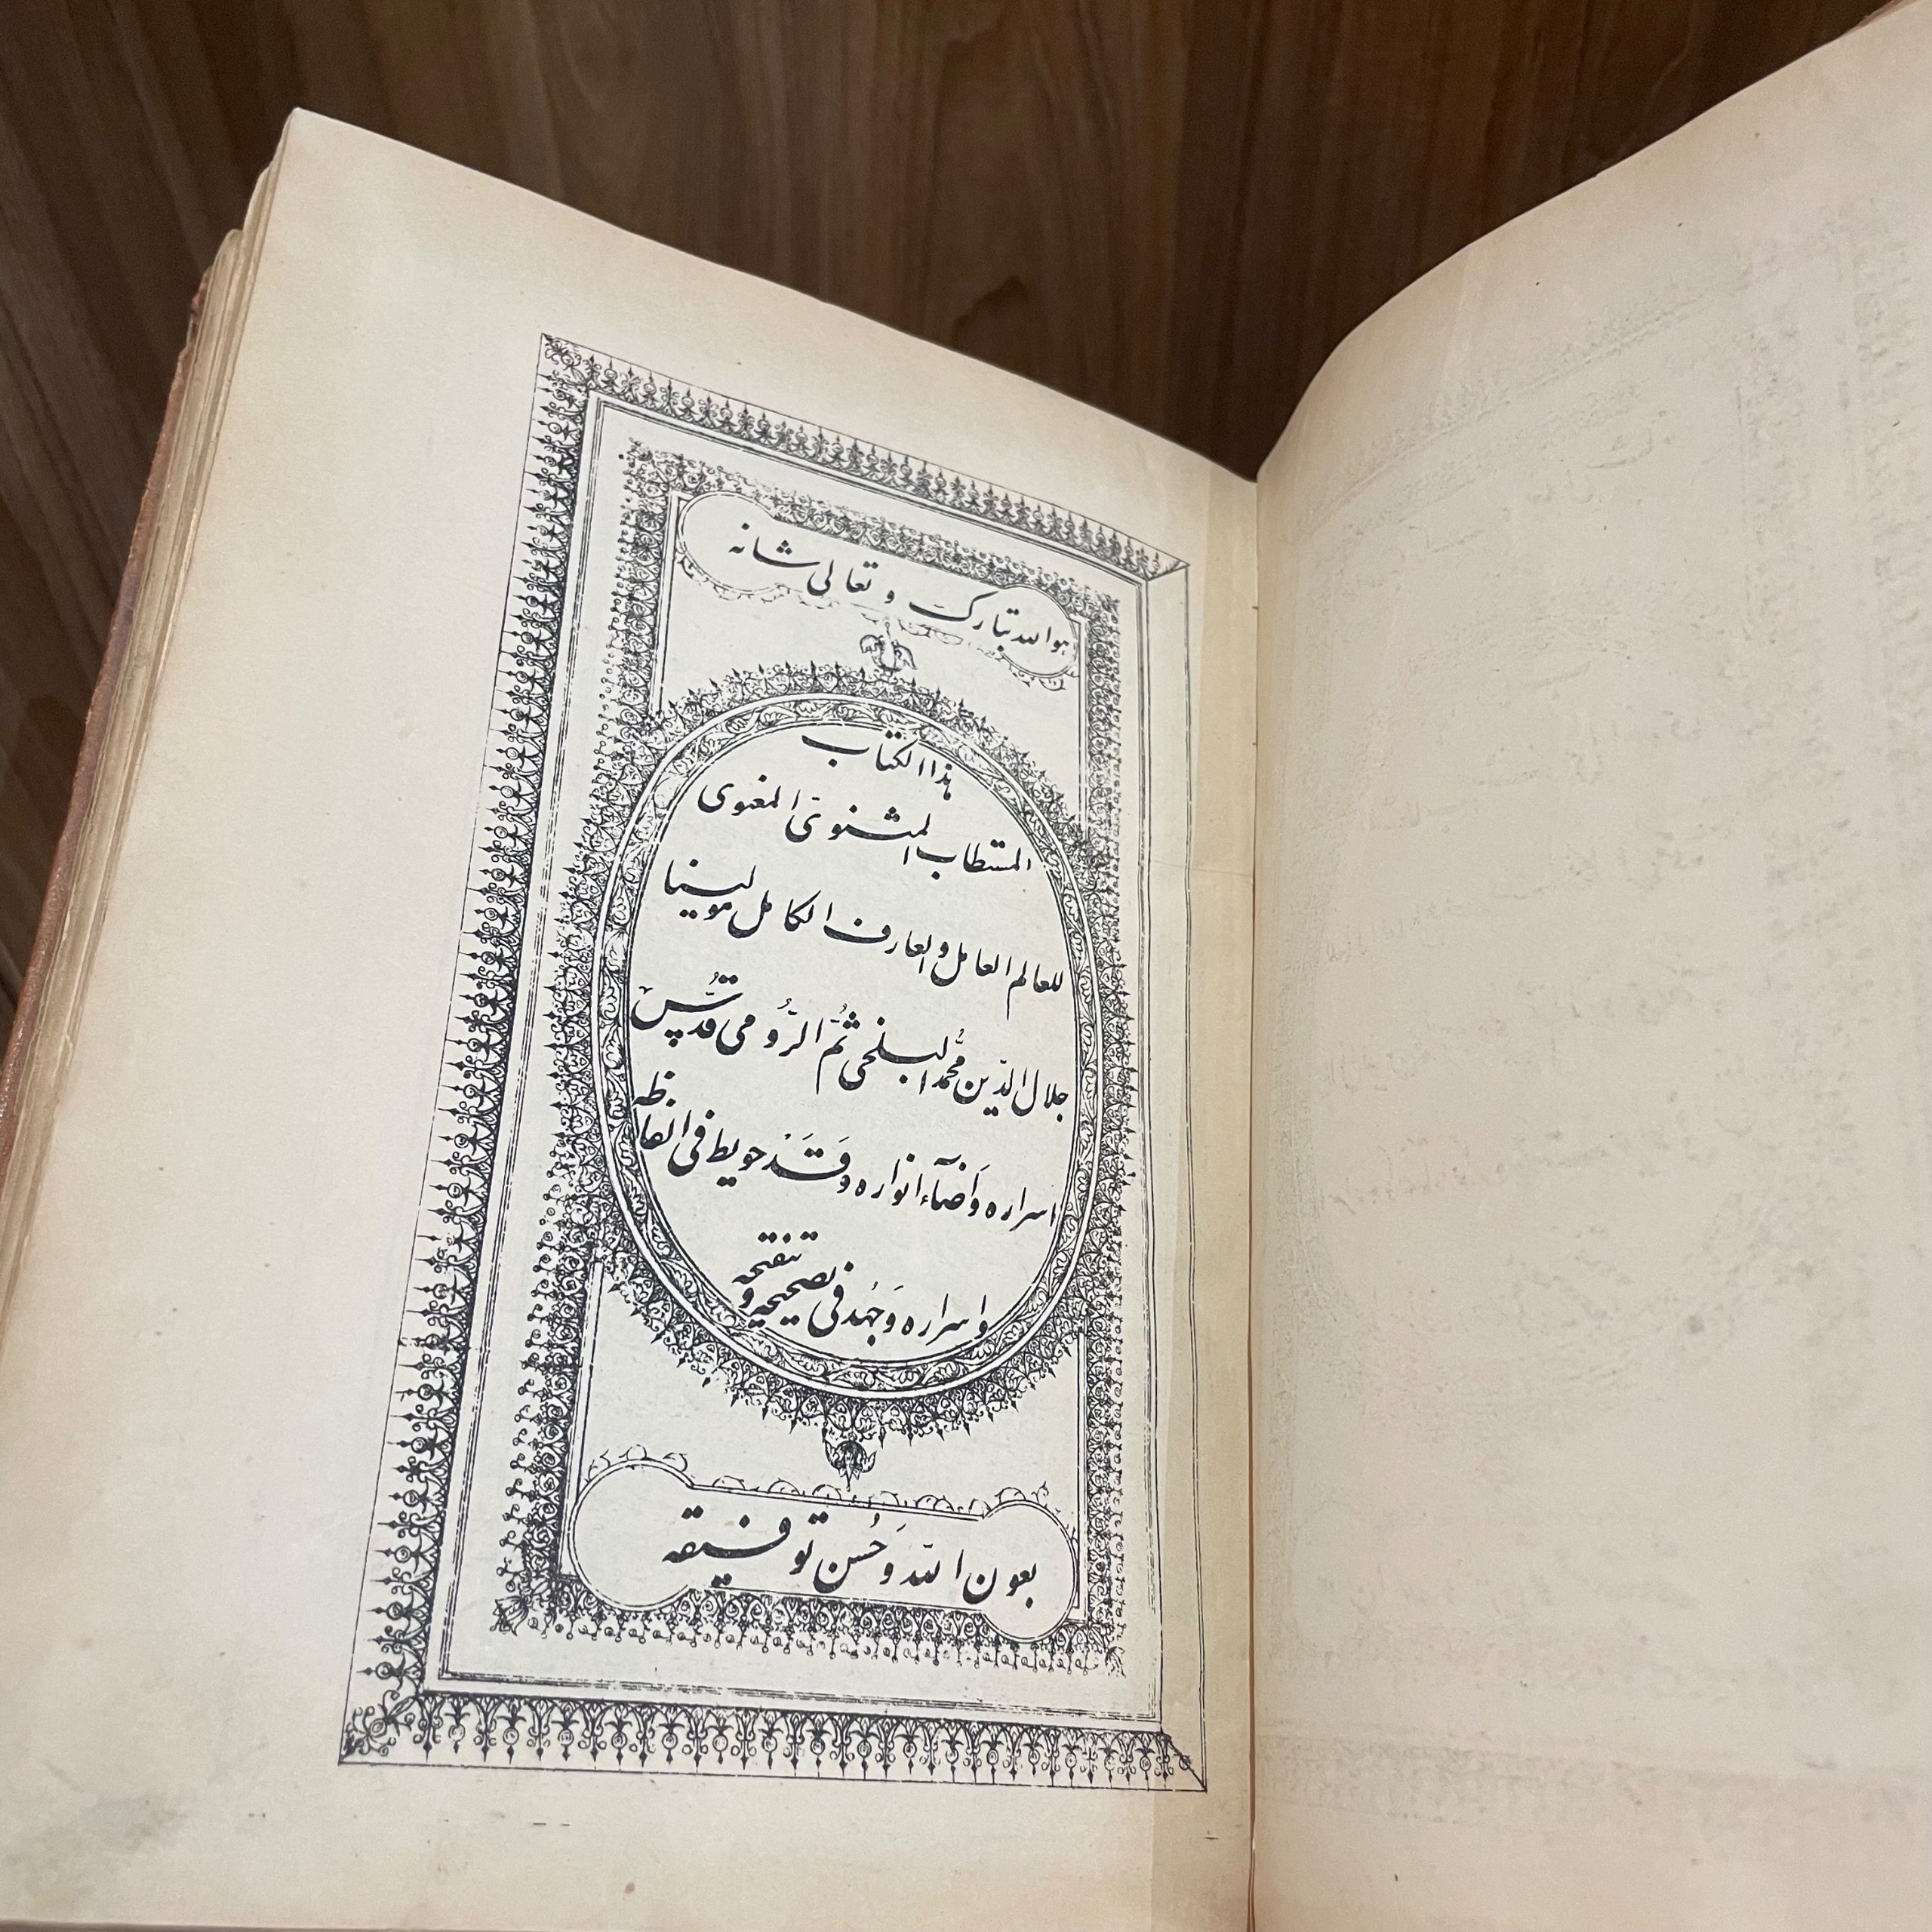 هو الله تبارک و تعالی شانه
هذا الکتاب
المستطاب المثنویّ المعنوی
للعالم العامل والعارف الکامل مولینا
جلال الدّین محُمد البلخی ثُمّ الرُّومی قدّسُ
اسراره وَاَضآء انواره وَقَدْ حویط فی الفاظه
و اسراره وَجَهُد فی تصحیحه و تنقحه
بعون اللّه وَحُسن توفیقه